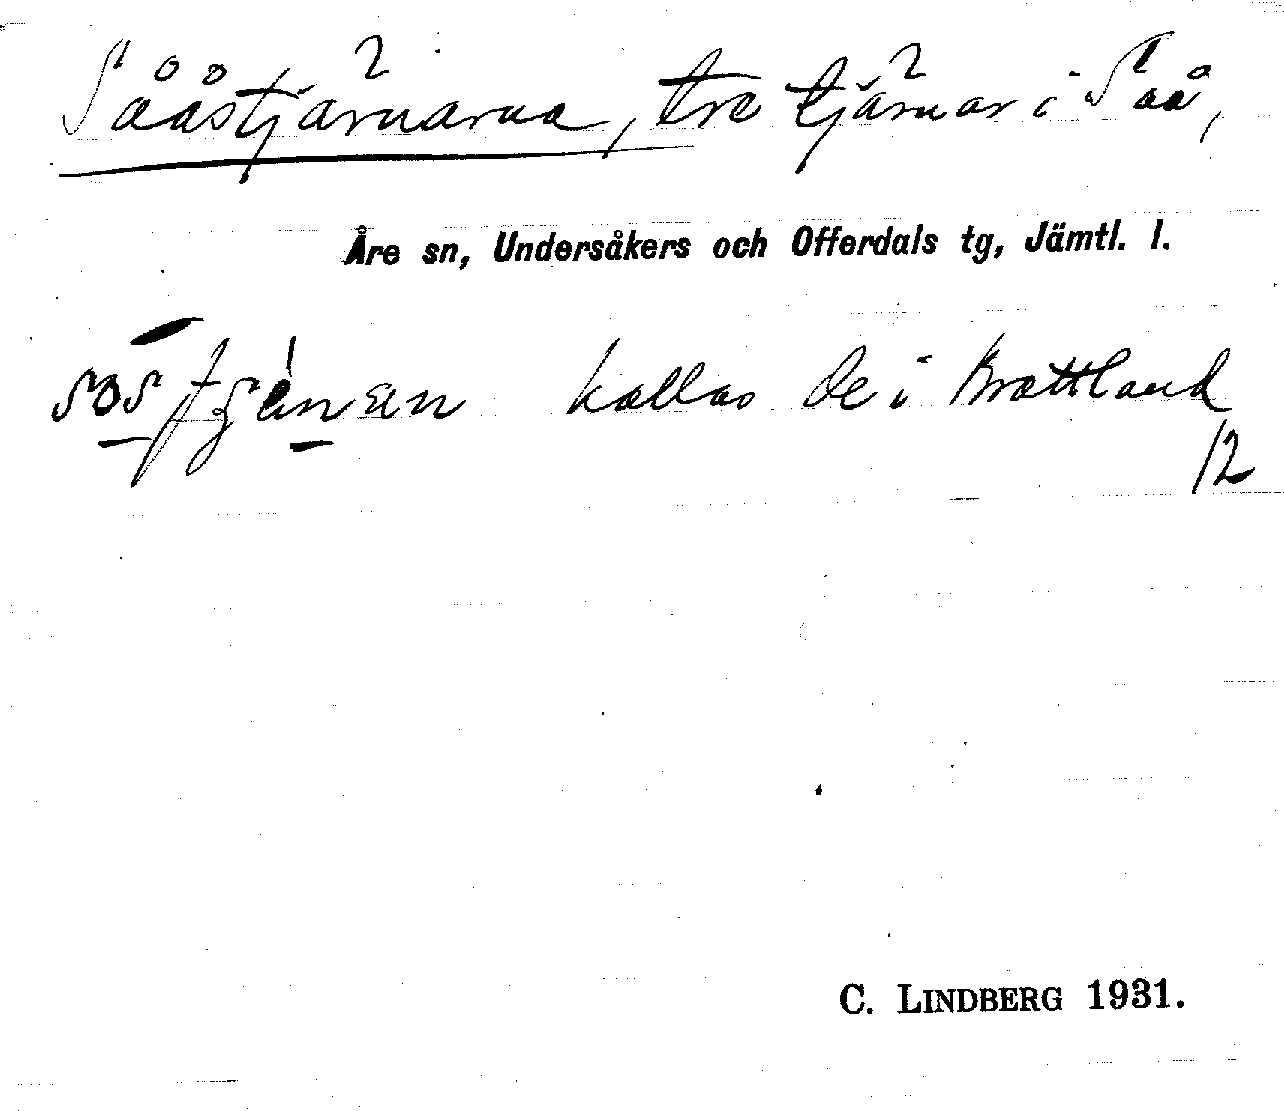 Sååstjärnarna, tre tjärnar i Såå,
Åre sn, Undersåkers och Offerdals tg, Jämtl. l.
kallas de i Brattland
12
C. LINDBERG 1931.